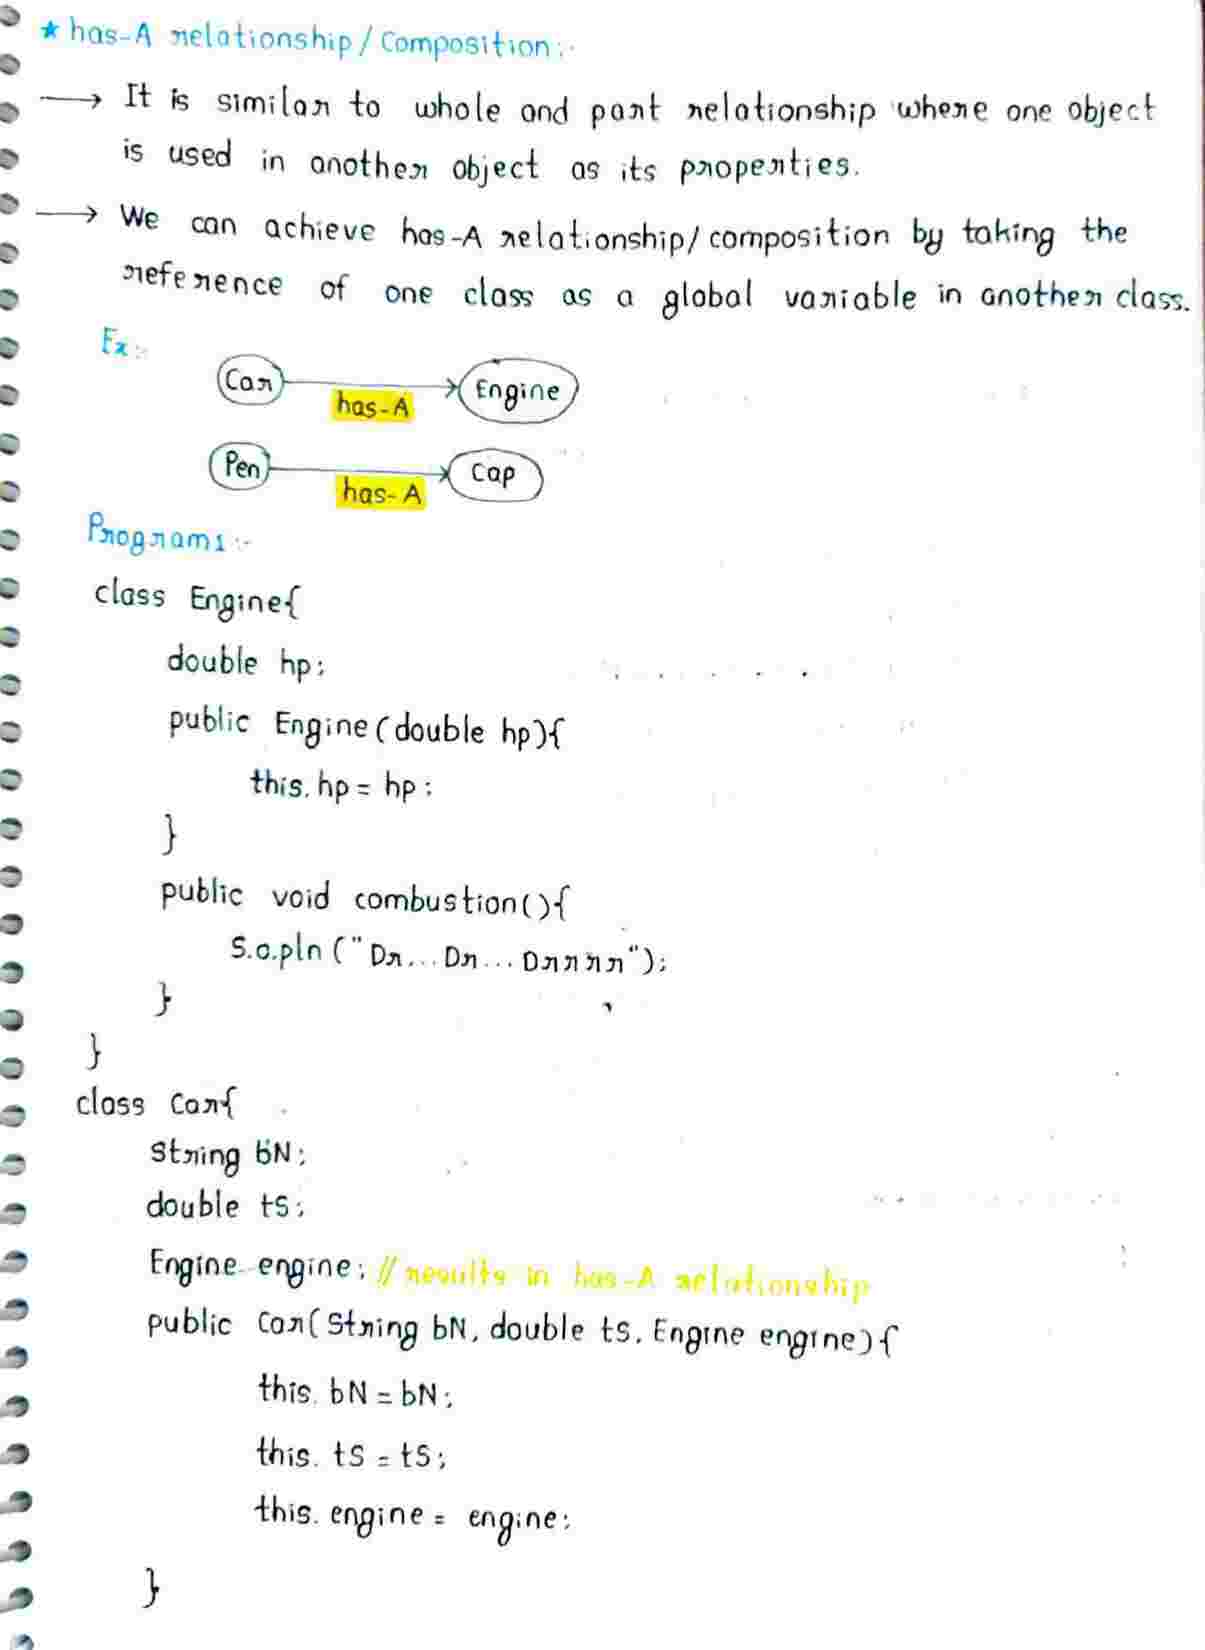 ★ has-A relationship/Composition:-
→ It is similar to whole and part relationship where one object
is used in another object as its properties.
→ We can achieve has-A relationship/composition by taking the
reference of one class as a global variable in another class.
Ex:-
Car has-A Engine
Pen has-A Cap
Program1:-
class Engine{
double hp;
public Engine(double hp){
this.hp = hp;
}
public void combustion(){
S.o.pln("Dr...Dr...Drrrrr");
}
}
class Car{
String bN;
double tS;
Engine engine; // results in has-A relationship
public Car(String bN, double tS, Engine engine){
this.bN = bN;
this.tS = tS;
this.engine = engine;
}